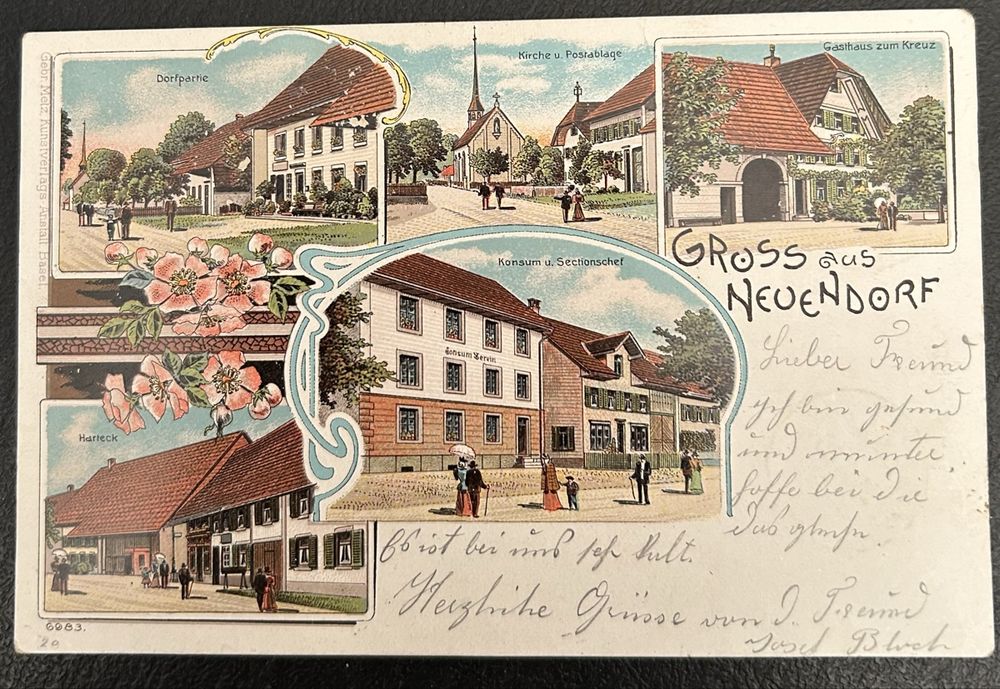 Dorfpartie
Kirche u. Postablage
Gasthaus zum Kreuz
Gebr. Metz, Kunstverlags-Anstalt, Basel.
GRUSS aus
NEUENDORF
Konsum u. Sectionschef
Consum Verein
Harteck
Lieber Freund
ich bin gesund
und munter
hoffe bei die
das gleiche.
Es ist bei uns sehr kalt.
Herzliche Grüsse von d. Freund
Josef Bloch
6983.
20